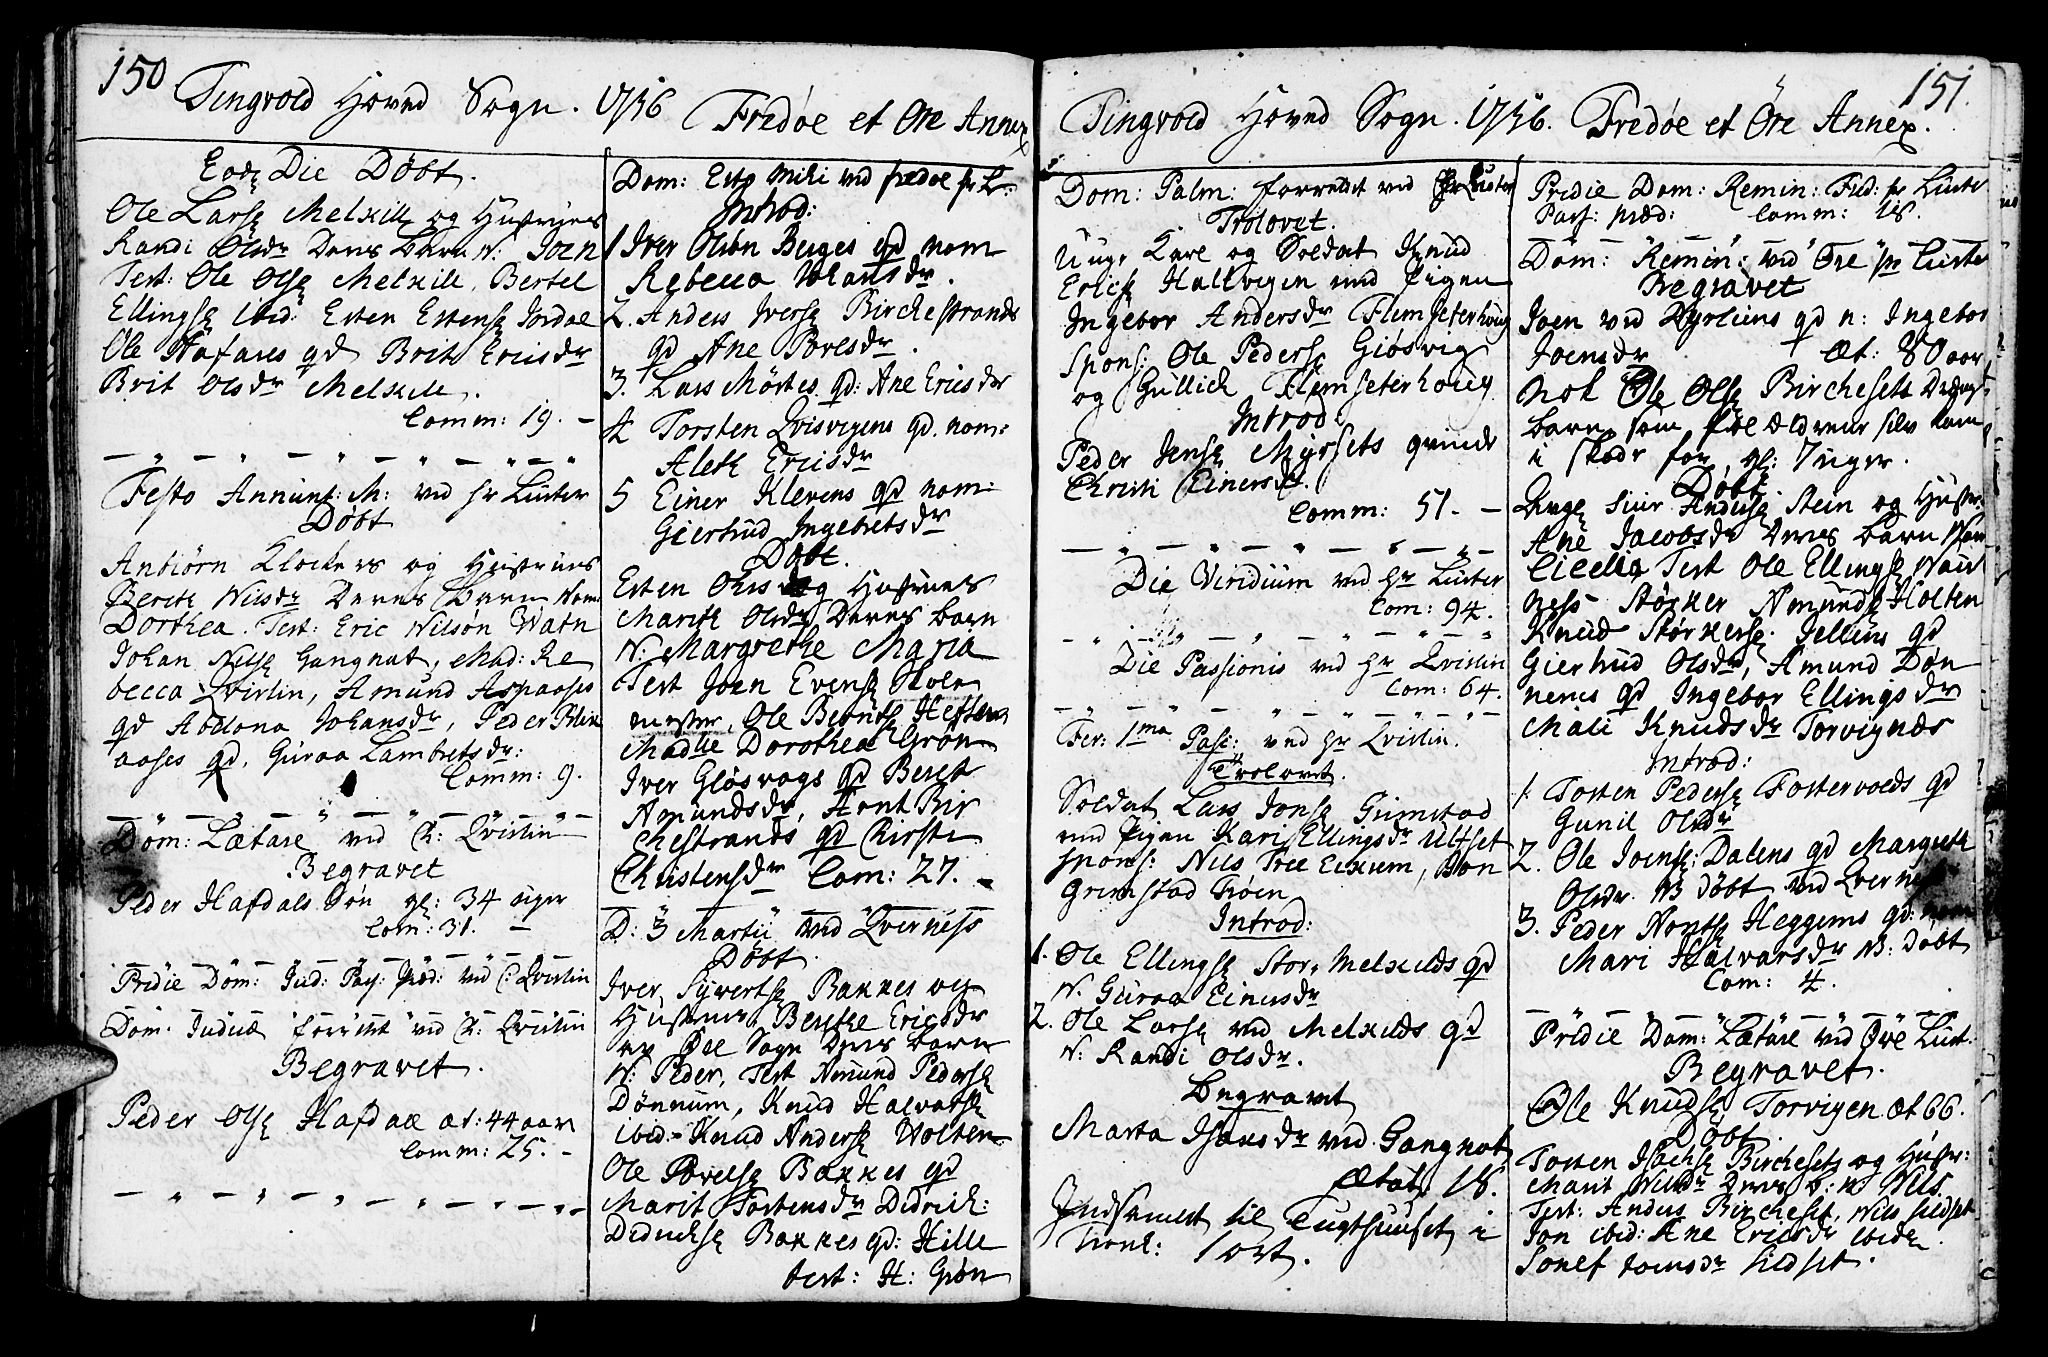 150
Tingvold Hoved Sogn. 1756 Fredøe et Øre Annex
Eod: Die Døbt.
Ole Larsen Melkild og Hustrues
Randi Olsdr Deres Barn N: Joen
Test: Ole Olsen Melkild, Bertel
Ellingsen ibid: Esten Estensen Jordal
Ole Hafares qd Brit Ericsdr
Brit Olsdr Melkild.
Comm: 19. -
Festo Annunt: M: ved hr Luster
Døbt
Anbiørn Klockers og Hustrues
Bereth Nilsdr Deres Barn Nom:
Dorthea. Test: Eric Nilsøn Watn
Johan Nilsen Gangnat, Mad: Re
becca Qvislin, Amund Aspaases
qd Abelona Johansdr, Peder Blik
aases qd, Guraa Lambretsdr:
Comm: 9.
Dom: Lætare ved C: Qvislin
Begravet
Peder Hafdals Søn gl: 34 uger
Com: 31. -
Pridie Dom: Jud: Pass: præd: ved C: Qvislin
Dom: Judicæ forrettet ved C: Qvislin
Begravet.
Peder Olsen Hafdal æt: 44 aar
Comm: 25. -
Dom: Esto Mihi ved Fredøe hr L:
Introd:
1 Iver Olsøn Berges qd nom
Rebecca Johansdr.
2. Anders Iversen Birchestrands
qd Ane Povesdr.
3. Lars Mørkes qd: Ane Ericsdr
4 Torsten Qvisvigens qd. nom:
Aleth Ericsdr
5 Einer Klevens qd nom:
Giertrud Ingebretsdr
Døbt.
Esten Ohrs og Hustrues
Marith Olsdr Deres Barn
N: Margrethe Maria
Test Joen Evensen Skole
mester, Ole Berntsen Heften
Madlle Dorothea Grøn
Iver Gløsvogs qd Bereth
Amundsdr, Arnt Bir
chestrands qd Kirsti
Christensdr Com: 27. -
D: 3 Martii ved Qverness
Døbt.
Iver Syvertsen Bakkes og
Hustrues Berethe Ericsdr
av Øre Sogn Deres Barn
N: Peder, Test Amund Pedersen
Dønnum, Knud Halvorsen
ibid: Knud Andersen Holten
Ole Povelsen Bakkes qd
Marit Torstensdr Didrich:
Didrichsen Bakkes qd: Hille
bert: H: Grøn
151.
Tingvold Hoved Sogn. 1756. Fredøe et Øre Annex.
Dom: Palm: forrettet ved hr Luster
Trolovet.
Unge Karl og Soldat Knud
Ericsen Hallvigen med Pigen
Ingebor Andersdr Flemseterhoug
Spons: Ole Pedersen Giøsvig
og Gullich Flemseterhoug
Introd:
Peder Jensen Myrsets qvinde
Christi Einersdr.
Comm: 51. -
Die Viridium ved hr Luster
Com: 94.
Die Passionis ved hr Qvislin
Com: 64.
Fer: 1ma Pasc: ved hr Qvislin.
Trolovet.
Soldat Lars Jonsen Grimstad
med Pigen Kari Ellingsdr Ulfset
spons: Nils Tree Eikrem, Jon
Grimstad troen
Introd:
1. Ole Ellingsen Store Melkilds qd
N. Guraa Einersdr
2. Ole Larsen ved Melkilds qd
N: Randi Olsdr.
Begravet
Marta Isaksdr ved Gangnat
Ætat: 18.
Indsamlet til Tugthuuset i
Trond: 1 ort.
Pridie Dom: Remin: Fred: hr Luster
Pass: præd: Comm: 18.
Dom: Remin: ved Øre hr Luster
Begravet
Joen ved Dyrliens qd n: Ingebor
Joensdr Æt: 80 aar
nok Ole Olsen Birchesets Drenge
barn som forældrene selv kom
i skade for, gl: 7 uger.
Døbt
Unge Siur Andersen Stein og Hustr:
Ane Jacobsdr Deres Barn Nom
Cicelia, Test Ole Ellingsen Wau
ness Størker Amundsen Holten
Knud Størkersen. Jelluns qd
Giertrud Olsdr, Amund Døn
nems qd Ingebor Ellingsdr
Mali Knudsdr Torvignæs
Introd:
1. Tosten Pedersen Fostervolds qd
Gunil Olsdr
2. Ole Joensen: Dalens qd Margreth
Olsdr. NB Døbt ved Qverness
3. Peder Arntsen Heggems qd: nom
Mari Halvarsdr NB: Døbt
Com: 4.
Pridie Dom: Lætare ved Øre Lust:
Begravet.
Ole Knudsen Torvigen æt 66.
Døbt.
Tosten Isachsen Birchesets og Hustr:
Marit Nilsdr Deres b: n: Nils.
Test: Anders Bircheset, Nils Sildset
Jon ibid: Ane Ericsdr ibid
Sonef Joensdr Sildset.